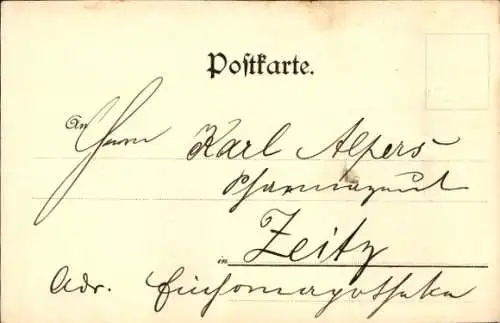 Postkarte.
An Herrn Karl Alpers
Pharmazeut
in Zeitz
Adr. Einhornapotheke